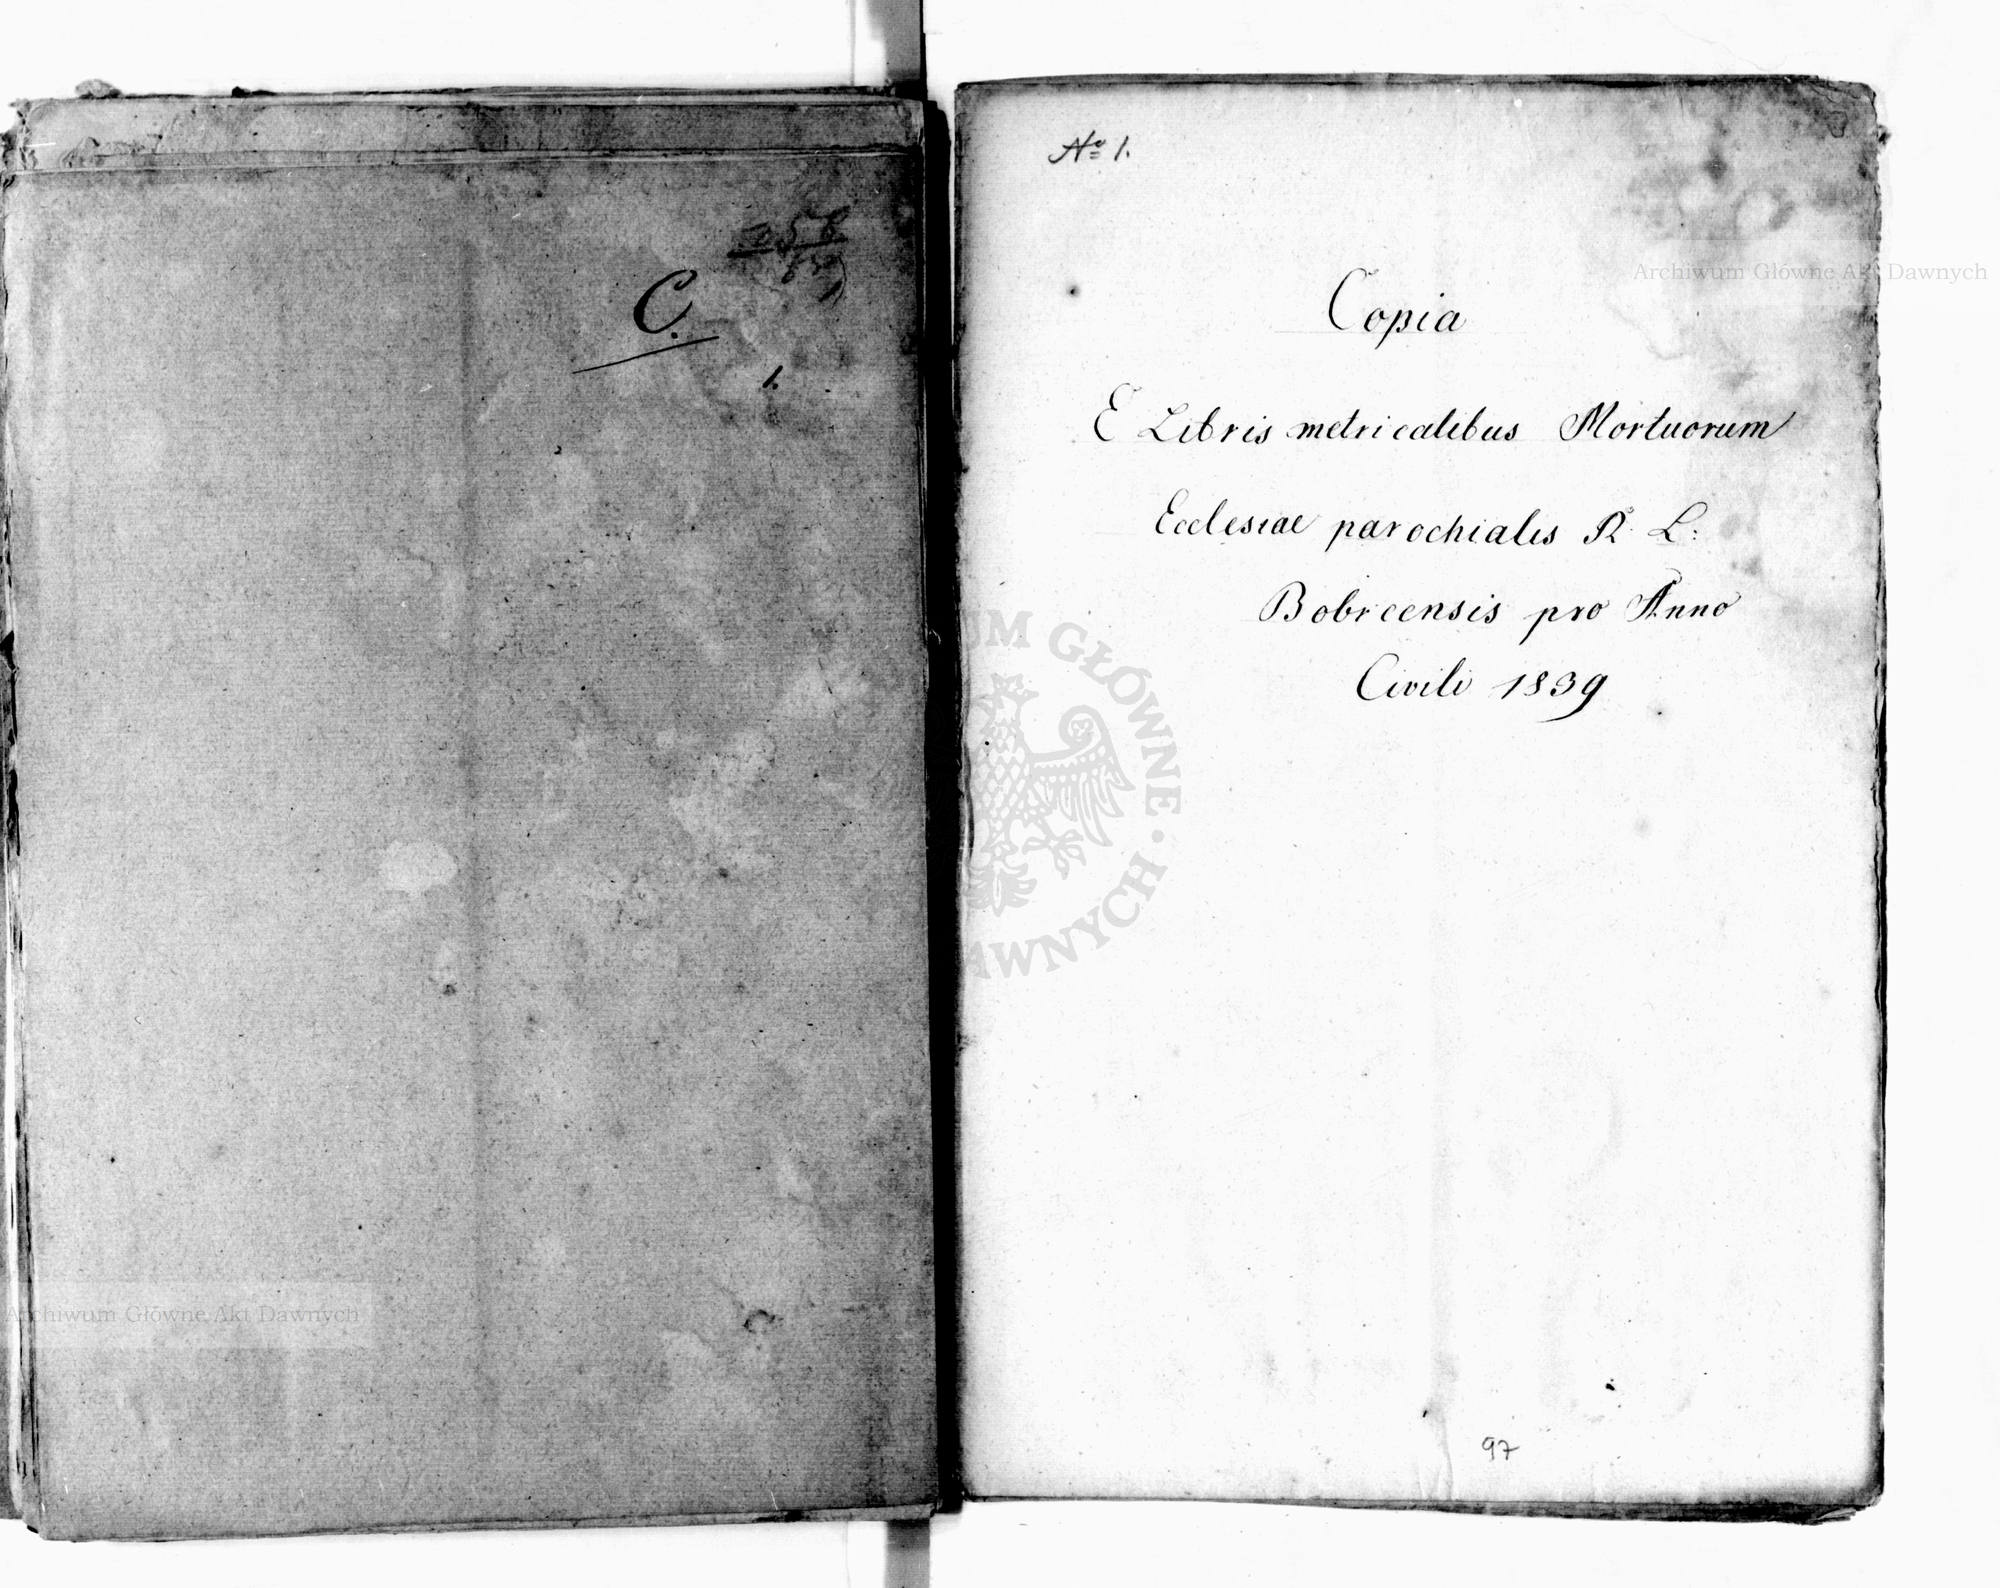 C.
1.
Nº 1.
Copia
E Libris metricalibus Mortuorum
Ecclesiae parochialis R. L:
Bobrcensis pro Anno
Civili 1839
97
Archiwum Główne Akt Dawnych
Archiwum Główne Akt Dawnych
UM GŁÓWNE · DAWNYCH ·